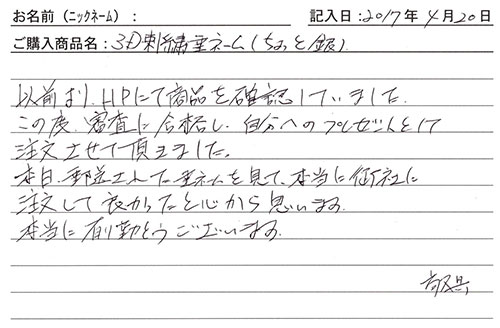 お名前（ニックネーム）： 記入日：2017年4月20日
ご購入商品名：3D刺繍重ネーム（ちょっと銀）
以前より、HPにて商品を確認していました。
この度、審査に合格し、自分へのプレゼントとして
注文させて頂きました。
本日、郵送された重ネームを見て、本当に御社に
注文して良かったと心から思います。
本当に有り難うございます。
敬具